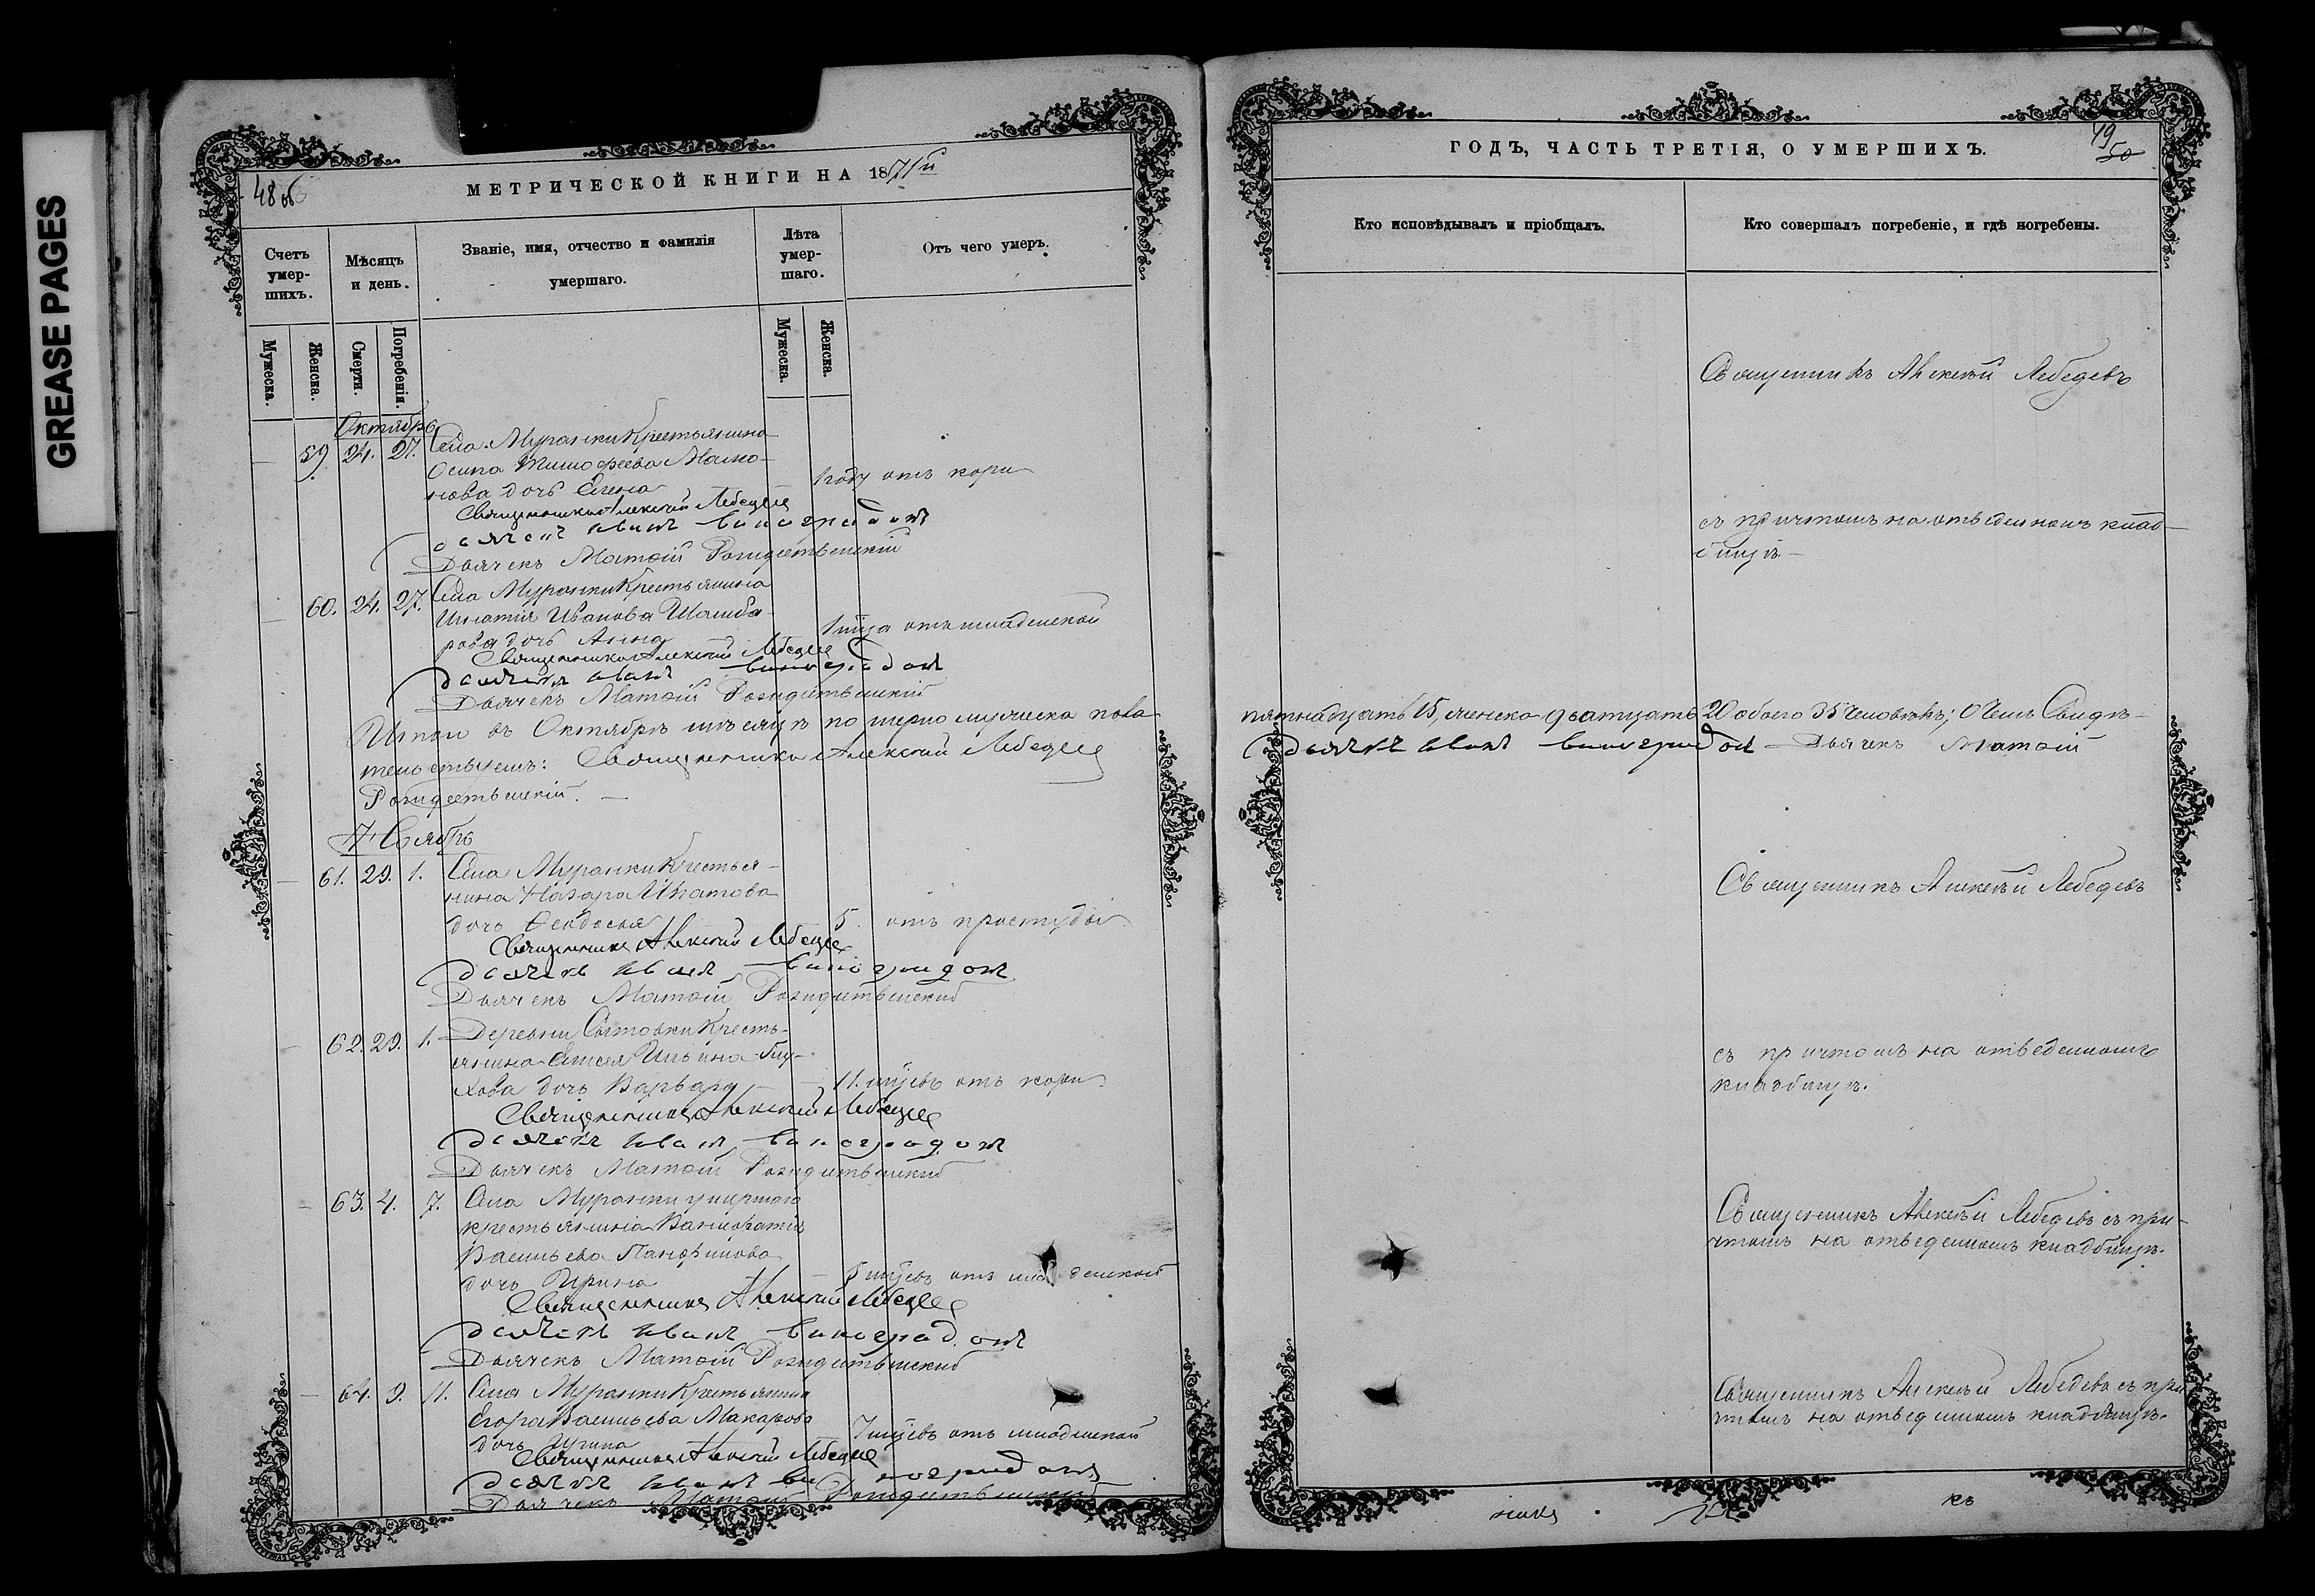 GREASE PAGES
48 об
МЕТРИЧЕСКОЙ КНИГИ НА 1871й
Счетъ умер-шихъ.
Мѣсяцъ и день.
Званіе, имя, отчество и фамилія умершаго.
Лѣта умер-шаго.
Отъ чего умеръ.
Мужеска.
Женска.
Смерти.
Погребенія.
Мужеска.
Женска.
Октябрь
59. 24. 27. Села Муранки Крестьянина
Осипа Тимофеева Мамо-
нова дочь Елена 1 году отъ кори
Священникъ Алексѣй Лебедевъ
Дьячекъ Иванъ Виноградовъ
Дьячекъ Матѳій Рождественскій
60. 24. 27. Села Муранки Крестьянина
Игнатія Иванова
дочь Анна
Священникъ Алексѣй Лебедевъ
Дьячекъ Иванъ Виноградовъ
Дьячекъ Матѳій Рождественскій
Итого въ Октябрѣ мѣсяцѣ померло мужеска пола
Священникъ Алексѣй Лебедевъ
Рождественскій.
Ноябрь
61. 29. 1. Села Муранки Крестья-
нина Назара Ипатова
дочь Ѳеодосья 5. отъ простуды
Священникъ Алексѣй Лебедевъ
Дьячекъ Иванъ Виноградовъ
Дьячекъ Матѳій Рождественскій
62. 29. 1. Деревни Сытовки Кресть-
янина Елисея Ильина Глу-
хова дочь Варвара 11. мцевъ отъ кори
Священникъ Алексѣй Лебедевъ
Дьячекъ Иванъ Виноградовъ
Дьячекъ Матѳій Рождественскій
63. 4. 7. Села Муранки умершаго
крестьянина
Васильева Панфилова
дочь Ирина мцевъ отъ младенской
Священникъ Алексѣй Лебедевъ
Дьячекъ Иванъ Виноградовъ
Дьячекъ Матѳій Рождественскій
64. 9. 11. Села Муранки Крестьянина
Егора Васильева Макарова
дочь Ирина 7 мцевъ отъ младенской
Священникъ Алексѣй Лебедевъ
Дьячекъ Иванъ Виноградовъ
Дьячекъ Матѳій Рождественскій
49
50
ГОДЪ, ЧАСТЬ ТРЕТІЯ, О УМЕРШИХЪ.
Кто исповѣдывалъ и пріобщалъ.
Кто совершалъ погребеніе, и гдѣ погребены.
Священникъ Алексѣй Лебедевъ
съ причтомъ на отведенномъ клад-
бищѣ
пятнадцать 15, женска двадцать 20 обоего 35 человѣкъ; О чемъ Свидѣ-
Дьячекъ Иванъ Виноградовъ Дьячекъ Матѳій
Священникъ Алексѣй Лебедевъ
съ причтомъ на отведенномъ
кладбищѣ.
Священникъ Алексѣй Лебедевъ съ при-
чтомъ на отведенномъ кладбищѣ.
Священникъ Алексѣй Лебедевъ съ при
чтомъ на отведенномъ кладбищѣ.